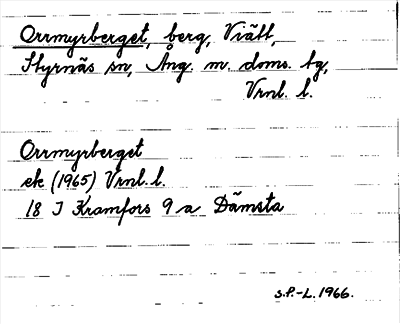 Orrmyrberget, berg, Viätt,
Styrnäs sn, Ång. m. doms. tg,
Vrnl. l.
Orrmyrberget
ek (1965) Vrnl. l.
18 J Kramfors 9 a Dämsta
S.P.-L. 1966.